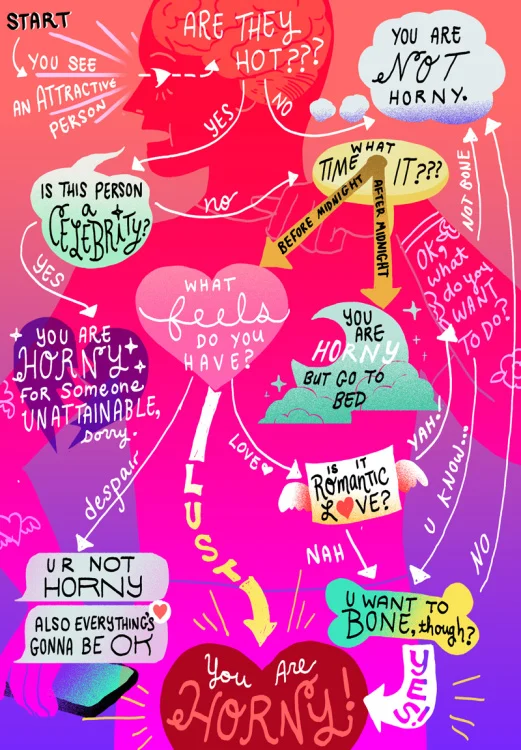 START
YOU SEE
AN ATTRACTIVE
PERSON
ARE THEY
HOT???
YES
NO
YOU ARE
NOT
HORNY.
IS THIS PERSON
a
CELEBRITY?
YES
no
WHAT
TIME IT???
BEFORE MIDNIGHT
AFTER MIDNIGHT
NOT BONE
OK,
what
do you
WANT
TO DO?
YOU ARE
HORNY
FOR SOMEONE
UNATTAINABLE,
sorry.
WHAT
feels
DO YOU
HAVE?
YOU
ARE
HORNY
BUT GO TO
BED
despair
LUST
LOVE
IS IT
ROMANTIC
LOVE?
YAH!
U KNOW...
NAH
NO
UR NOT
HORNY
ALSO EVERYTHING'S
GONNA BE OK
U WANT TO
BONE, though?
YES!
You Are
HORNY!